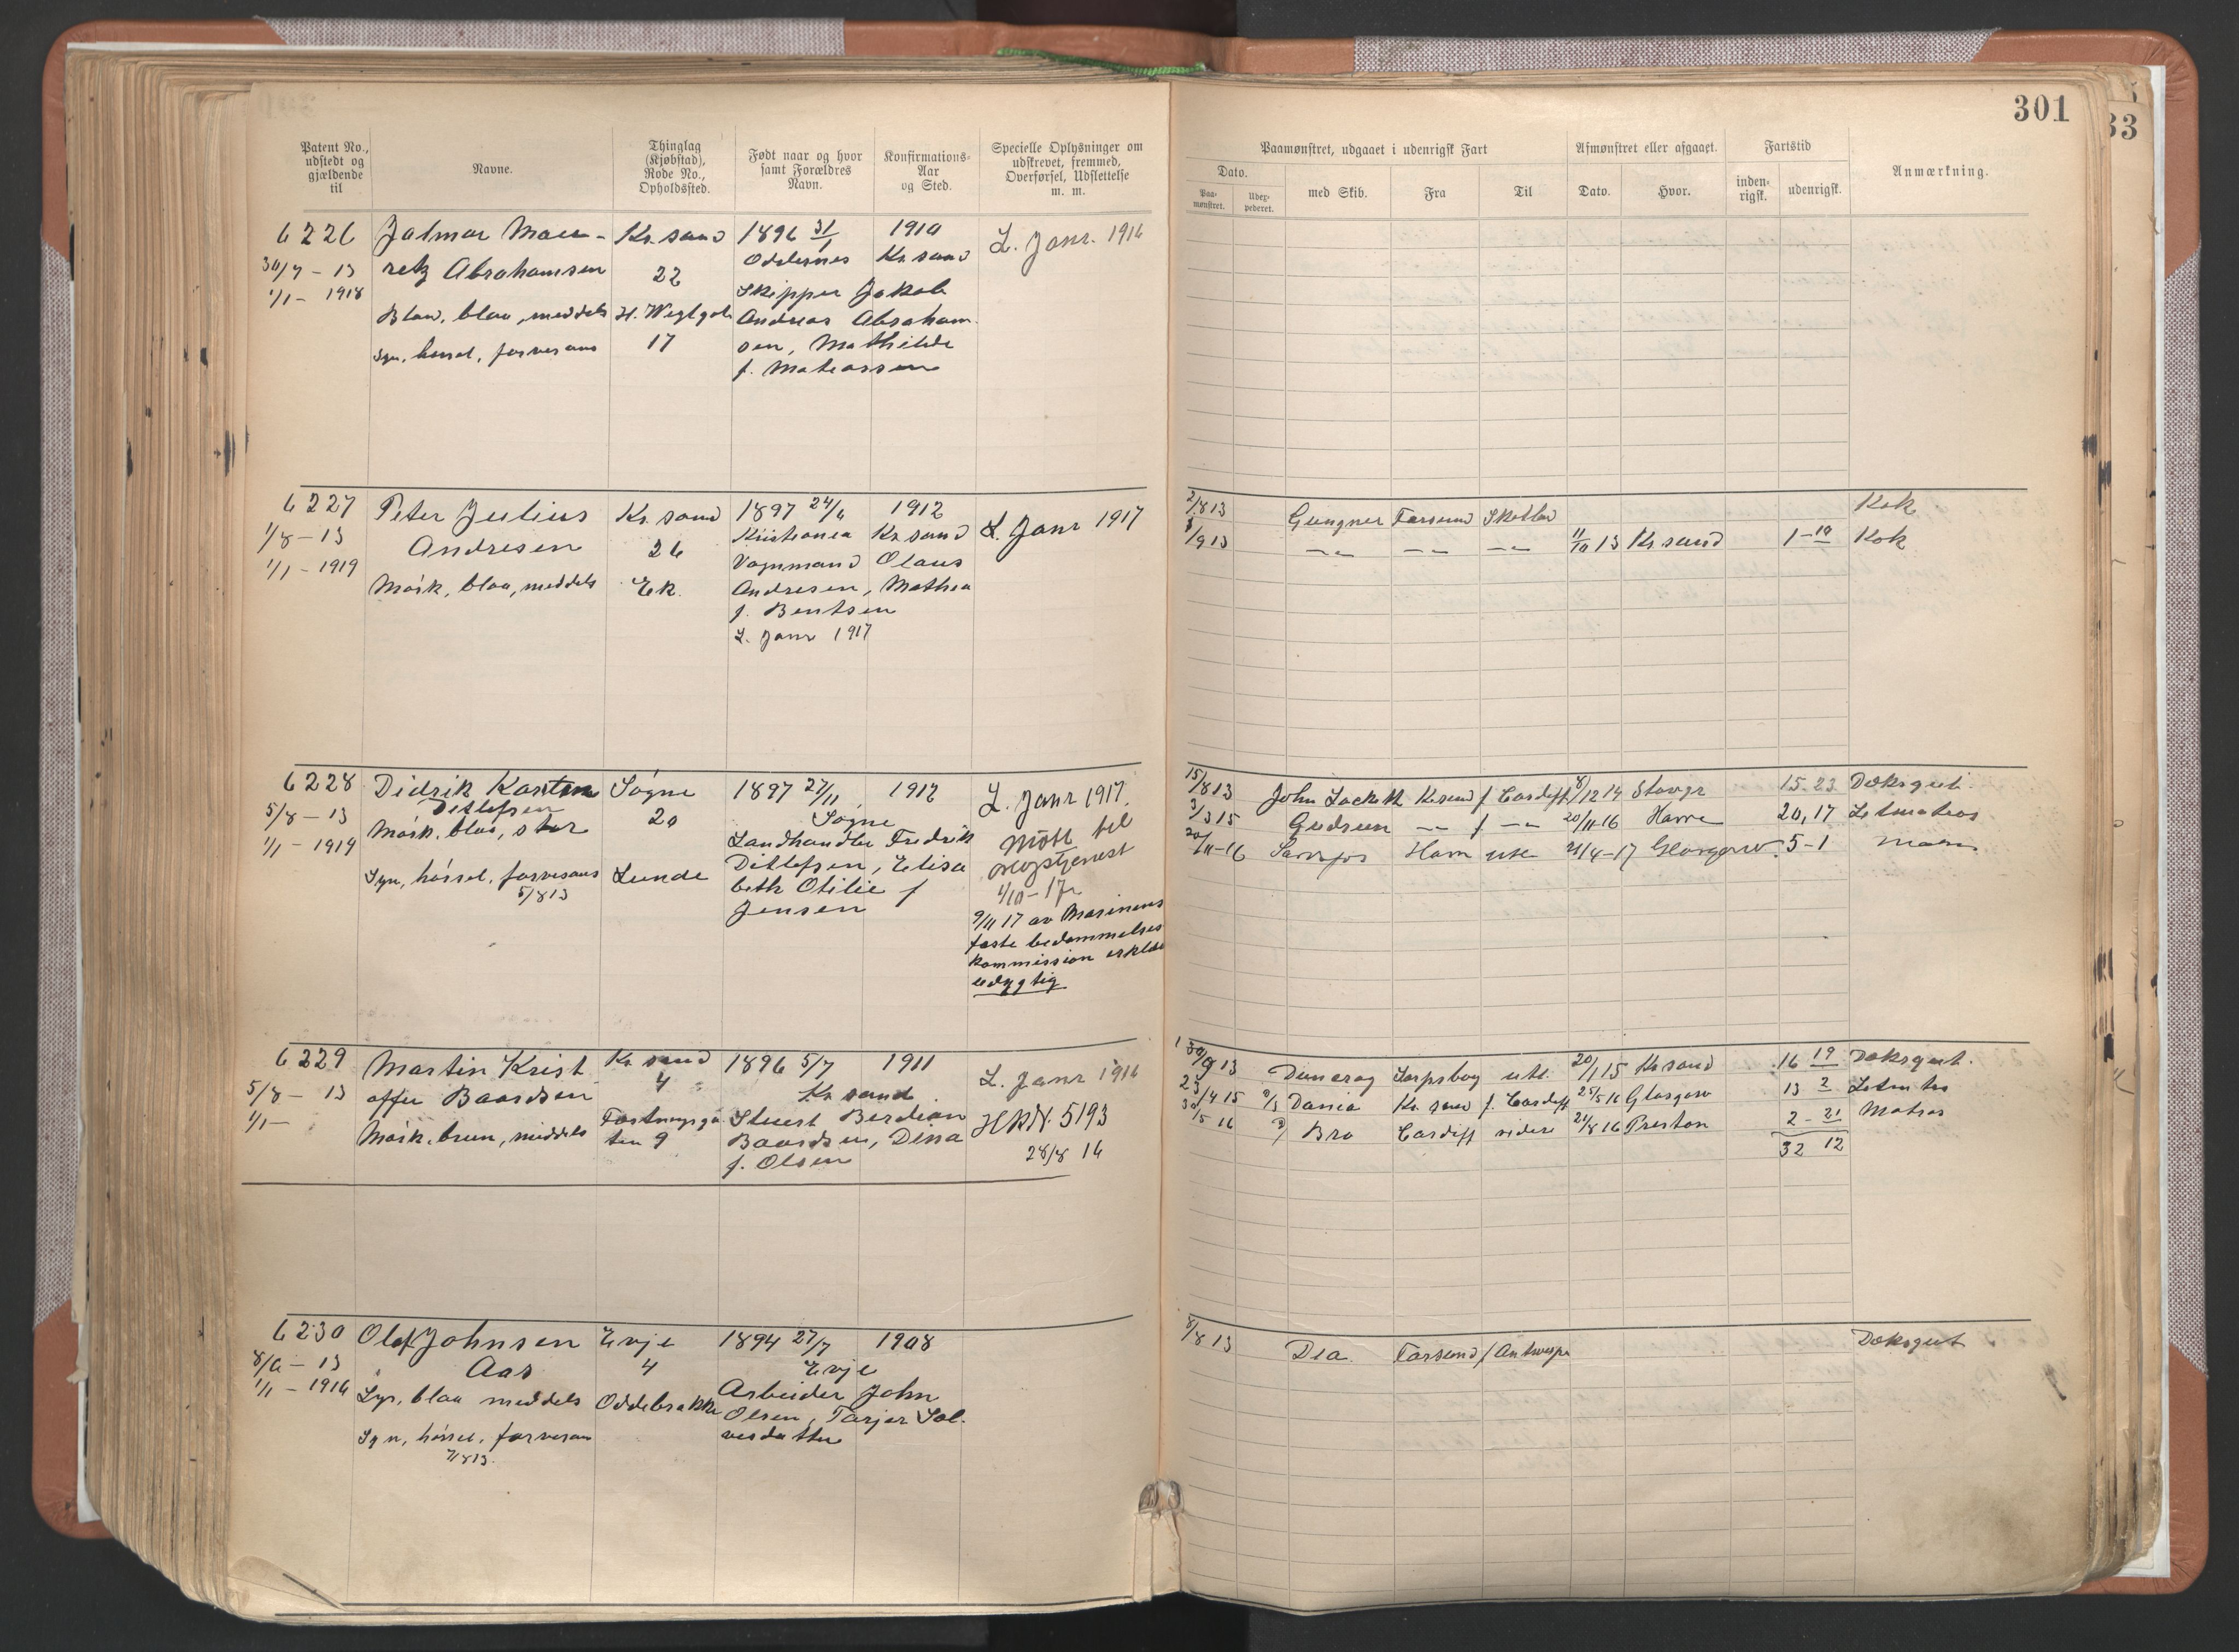 301
33
Patent No., udstedt og gjældende til
Navne.
Thinglag (Kjøbstad), Rode No., Opholdssted.
Født naar og hvor samt Forældres Navn.
Konfirmations-Aar og Sted.
Specielle Oplysninger om udskrevet, fremmed, Overførsel, Udslettelse m. m.
Paamønstret, udgaaet i udenrigsk Fart
Dato.
Paa-mønstret.
Uder-pederet.
med Skib.
Fra
Til
Afmønstret eller afgaaet.
Dato.
Hvor.
Fartstid
inden-rigsk.
udenrigsk.
Anmærkning.
6226
30/7 - 13
1/1 - 1918
Jalmar Mau-
retz Abrahamsen
Blaa, blaa, meddels
Syn, hørsel, farvesans
Kr.sand
22
H. Wergl.gate
17
1896 31/1
Oddernes
Skipper Jakob
Andreas Abraham-
sen, Mathilde
f. Mateassen
1910
Kr.sand
L. Janr. 1916
6227
1/8 - 13
1/1 - 1919
Peter Julius
Andresen
Mørk, blaa, meddels
Kr.sand
26
Ek.
1897 24/6
Kristiania
Vognmand Olaus
Andresen, Mathea
f. Bentsen
L. Janr 1917
1912
Kr.sand
L. Janr 1917
2/8 13 Gungner Farsund Skotland Kok
1/9 13 -"- -"- -"- 11/10 13 Kr.sand 1-10 Kok
6228
5/8 - 13
1/1 - 1919
Didrik Karsten
Ditlefsen
Mørk, blaa, stor
Syn, hørsel, farvesans
5/8 13
Søgne
20
Lunde
1897 27/11
Søgne
Landhandler Fredrik
Ditlefsen, Elisa
beth Otilie f
Jensen
1912
L. Janr 1917.
Møtt til
1/10-17
9/11 17 av Marinens
faste bedømmelses
kommission erklær
udygtig
15/8 13 John Lockett Kr.sand f Cardiff 8/12 14 Stavgr 15.23 Dæksgut.
3/3 15 Gudrun -"- f -"- 20/11-16 Havre 20,17 Letmatros
20/11-16 Havre ute 21/4-17 Glasgow 5-1
6229
5/8 - 13
1/1 -
Martin Krist
offer Baardsen
Mørk, brun, middels
Kr sand
4
Fæstningsga
ten 9
1896 5/7
Kr.sand
Stuert Berdian
Baardsen, Dina
f. Olsen
1911
L. Janr 1916
HKN. 5193
28/8 16
30/9 13 Dunerag Sarpsborg ute 20/1 15 Kr.sand 16 19 Dæksgut.
23/4 15 D/S Dania Kr. sand f. Cardiff 25/5 16 Glasgow 13 2 Letm tros
30/5 16 Bro Cardiff videre 21/8 16 Preston 2-21 Matros
32 12
6230
8/8 - 13
1/1 - 1916
Olaf Johnsen
Aas
Lys, blaa meddels
Syn, hørsel, farvesans
7/8 13.
Evje
4
Oddebrække
1894 27/7
Evje
Arbeider John
Olsen, Tarjer Sol.
vesdatter
1908
8/8 13 Dea. Farsund f Antwerpn Dæksgut